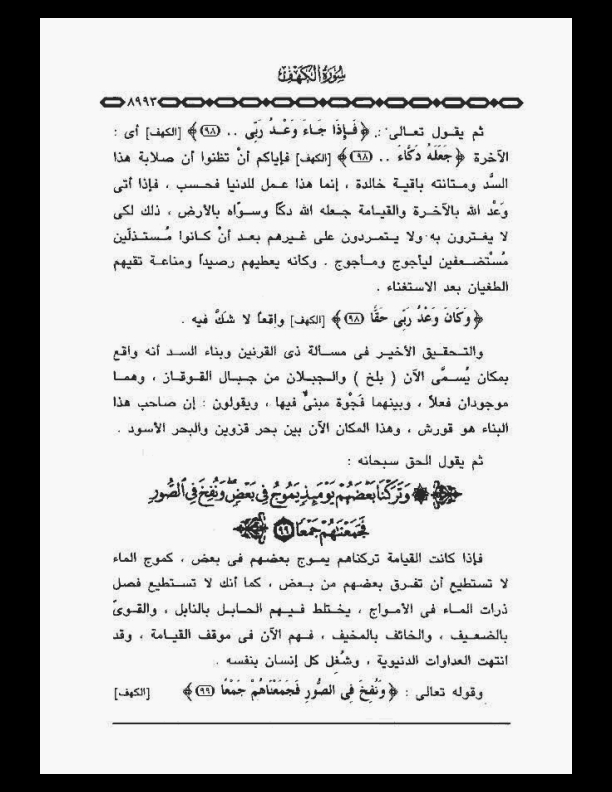 سُورَةُ الكَهْفِ
٨٩٩٣
ثم يقول تعالى : ﴿ فَإِذَا جَاءَ وَعْدُ رَبِّى .. (٩٨) ﴾ [الكهف] أى :
الآخرة ﴿ جَعَلَهُ دَكَّاءَ .. (٩٨) ﴾ [الكهف] فإياكم أنْ تظنوا أن صلابة هذا
السدِّ ومتانته باقية خالدة ، إنما هذا عمل للدنيا فحسب ، فإذا أتى
وَعْد الله بالآخرة والقيامة جعله الله دكاً وسوّاه بالأرض ، ذلك لكى
لا يغترون به ولا يتمردون على غيرهم بعد أنْ كانوا مُستذلّين
مُسْتضعفين ليأجوج ومأجوج . وكأنه يعطيهم رصيداً ومناعة تقيهم
الطغيان بعد الاستغناء .
﴿ وَكَانَ وَعْدُ رَبِّى حَقًّا (٩٨) ﴾ [الكهف] واقعاً لا شكَّ فيه .
والتحقيق الأخير فى مسألة ذى القرنين وبناء السد أنه واقع
بمكان يُسمَّى الآن ( بلخ ) والجبلان من جبال القوقاز ، وهما
موجودان فعلاً ، وبينهما فَجْوة مبنىٌّ فيها ، ويقولون : إن صاحب هذا
البناء هو قورش ، وهذا المكان الآن بين بحر قزوين والبحر الأسود .
ثم يقول الحق سبحانه :
وَتَرَكْنَا بَعْضَهُمْ يَوْمَئِذٍ يَمُوجُ فِى بَعْضٍ وَنُفِخَ فِى ٱلصُّورِ
فَجَمَعْنَٰهُمْ جَمْعًا (٩٩)
فإذا كانت القيامة تركناهم يموج بعضهم فى بعض ، كموج الماء
لا تستطيع أن تفرق بعضهم من بعض ، كما أنك لا تستطيع فصل
ذرات الماء فى الأمواج ، يختلط فيهم الحابل بالنابل ، والقوىّ
بالضعيف ، والخائف بالمخيف ، فهم الآن فى موقف القيامة ، وقد
انتهت العداوات الدنيوية ، وشُغِل كل إنسان بنفسه .
وقوله تعالى : ﴿ وَنُفِخَ فِى الصُّورِ فَجَمَعْنَاهُمْ جَمْعًا (٩٩) ﴾ [الكهف]